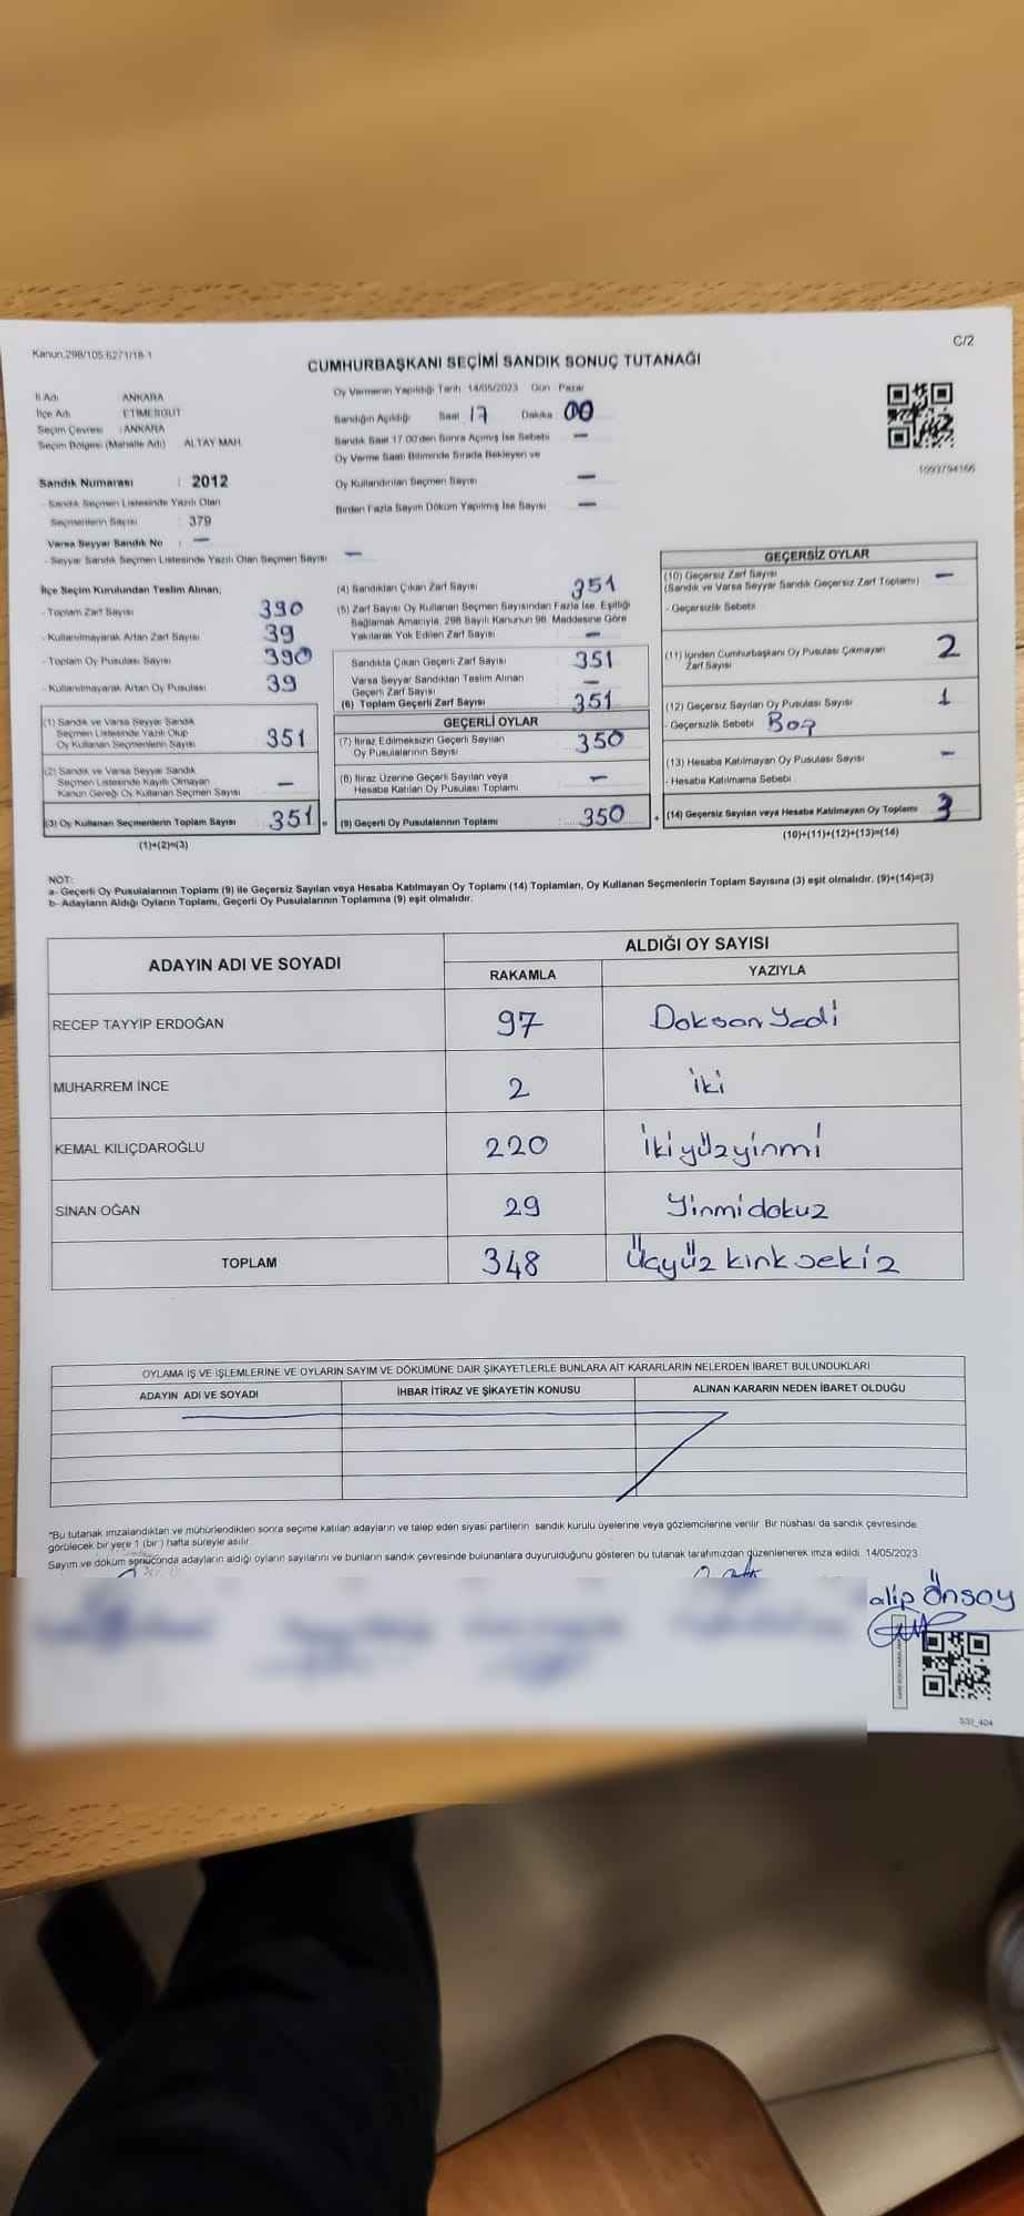 Kanun:298/105 6271/18-1
C/2
CUMHURBAŞKANI SEÇİMİ SANDIK SONUÇ TUTANAĞI
İl Adı ANKARA
İlçe Adı ETİMESGUT
Seçim Çevresi : ANKARA
Seçim Bölgesi (Mahalle Adı) ALTAY MAH.
Sandık Numarası : 2012
- Sandık Seçmen Listesinde Yazılı Olan
Seçmenlerin Sayısı 379
Varsa Seyyar Sandık No : —
- Seyyar Sandık Seçmen Listesinde Yazılı Olan Seçmen Sayısı —
Oy Vermenin Yapıldığı Tarih 14/05/2023 Gün Pazar
Sandığın Açıldığı Saat 17 Dakika 00
Sandık Saat 17.00'den Sonra Açılmış İse Sebebi —
Oy Verme Saati Bitiminde Sırada Bekleyen ve
Oy Kullandırılan Seçmen Sayısı —
Birden Fazla Sayım Döküm Yapılmış İse Sayısı —
İlçe Seçim Kurulundan Teslim Alınan;
- Toplam Zarf Sayısı 390
- Kullanılmayarak Artan Zarf Sayısı 39
- Toplam Oy Pusulası Sayısı 390
- Kullanılmayarak Artan Oy Pusulası 39
(1) Sandık ve Varsa Seyyar Sandık
Seçmen Listesinde Yazılı Olup
Oy Kullanan Seçmenlerin Sayısı 351
(2) Sandık ve Varsa Seyyar Sandık
Seçmen Listesinde Kayıtlı Olmayan
Kanun Gereği Oy Kullanan Seçmen Sayısı —
(3) Oy Kullanan Seçmenlerin Toplam Sayısı 351
(1)+(2)=(3)
(4) Sandıktan Çıkan Zarf Sayısı 351
(5) Zarf Sayısı Oy Kullanan Seçmen Sayısından Fazla İse, Eşitliği
Sağlamak Amacıyla, 298 Sayılı Kanunun 98. Maddesine Göre
Yakılarak Yok Edilen Zarf Sayısı —
Sandıkta Çıkan Geçerli Zarf Sayısı 351
Varsa Seyyar Sandıktan Teslim Alınan
Geçerli Zarf Sayısı —
(6) Toplam Geçerli Zarf Sayısı 351
GEÇERLİ OYLAR
(7) İtiraz Edilmeksizin Geçerli Sayılan
Oy Pusulalarının Sayısı 350
(8) İtiraz Üzerine Geçerli Sayılan veya
Hesaba Katılan Oy Pusulası Toplamı —
(9) Geçerli Oy Pusulalarının Toplamı : 350
GEÇERSİZ OYLAR
(10) Geçersiz Zarf Sayısı
(Sandık ve Varsa Seyyar Sandık Geçersiz Zarf Toplamı) —
- Geçersizlik Sebebi
(11) İçinden Cumhurbaşkanı Oy Pusulası Çıkmayan
Zarf Sayısı 2
(12) Geçersiz Sayılan Oy Pusulası Sayısı 1
- Geçersizlik Sebebi Boş
(13) Hesaba Katılmayan Oy Pusulası Sayısı —
- Hesaba Katılmama Sebebi
(14) Geçersiz Sayılan veya Hesaba Katılmayan Oy Toplamı 3
(10)+(11)+(12)+(13)=(14)
NOT:
a- Geçerli Oy Pusulalarının Toplamı (9) ile Geçersiz Sayılan veya Hesaba Katılmayan Oy Toplamı (14) Toplamları, Oy Kullanan Seçmenlerin Toplam Sayısına (3) eşit olmalıdır. (9)+(14)=(3)
b- Adayların Aldığı Oyların Toplamı, Geçerli Oy Pusulalarının Toplamına (9) eşit olmalıdır.
ADAYIN ADI VE SOYADI
ALDIĞI OY SAYISI
RAKAMLA YAZIYLA
RECEP TAYYİP ERDOĞAN 97 Doksan Yedi
MUHARREM İNCE 2 iki
KEMAL KILIÇDAROĞLU 220 ikiyüzyirmi
SİNAN OĞAN 29 Yirmidokuz
TOPLAM 348 Üçyüz kırk sekiz
OYLAMA İŞ VE İŞLEMLERİNE VE OYLARIN SAYIM VE DÖKÜMÜNE DAİR ŞİKAYETLERLE BUNLARA AİT KARARLARIN NELERDEN İBARET BULUNDUKLARI
ADAYIN ADI VE SOYADI İHBAR İTİRAZ VE ŞİKAYETİN KONUSU ALINAN KARARIN NEDEN İBARET OLDUĞU
"Bu tutanak imzalandıktan ve mühürlendikten sonra seçime katılan adayların ve talep eden siyasi partilerin sandık kurulu üyelerine veya gözlemcilerine verilir. Bir nüshası da sandık çevresinde
görülecek bir yere 1 (bir) hafta süreyle asılır.
Sayım ve döküm sonucunda adayların aldığı oyların sayılarını ve bunların sandık çevresinde bulunanlara duyurulduğunu gösteren bu tutanak tarafımızdan düzenlenerek imza edildi. 14/05/2023
alip Önsoy